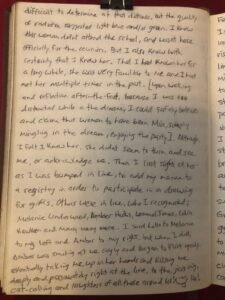 difficult to determine at that distance, but the quality
of radiance, suggested light blue and/or green. I knew
this woman didn't attend the school, and wasn't here
officially for the reunion. But I also knew with
certainty that I knew her. That I had known her for
a long while, she was very familiar to me and I had
met her multiple times in the past. [Upon waking
and relation afterlife God, because I was too
distracted while in the dream, I could safely believe
and claim that woman to have been Mia, simply
mingling in the dream, enjoying the party]. Although
I felt I knew her, she didn't seem to turn and see
me, or acknowledge me. Then I lost sight of her
as I was bumped in line, to add my name to
a registry in order to participate in a drawing
for gifts. Others were in line, who I recognized;
Melanie Underwood, Amber Hicks,
and many many more. I said hello to Melanie
to my left and Amber to my right, but when I did,
Amber was smiling at me coyly and began to flirt openly.
eventually picking me up in her hands and kissing me
deeply and passionately right at the line, to the jeering,
cat-calling and laughters of all those around